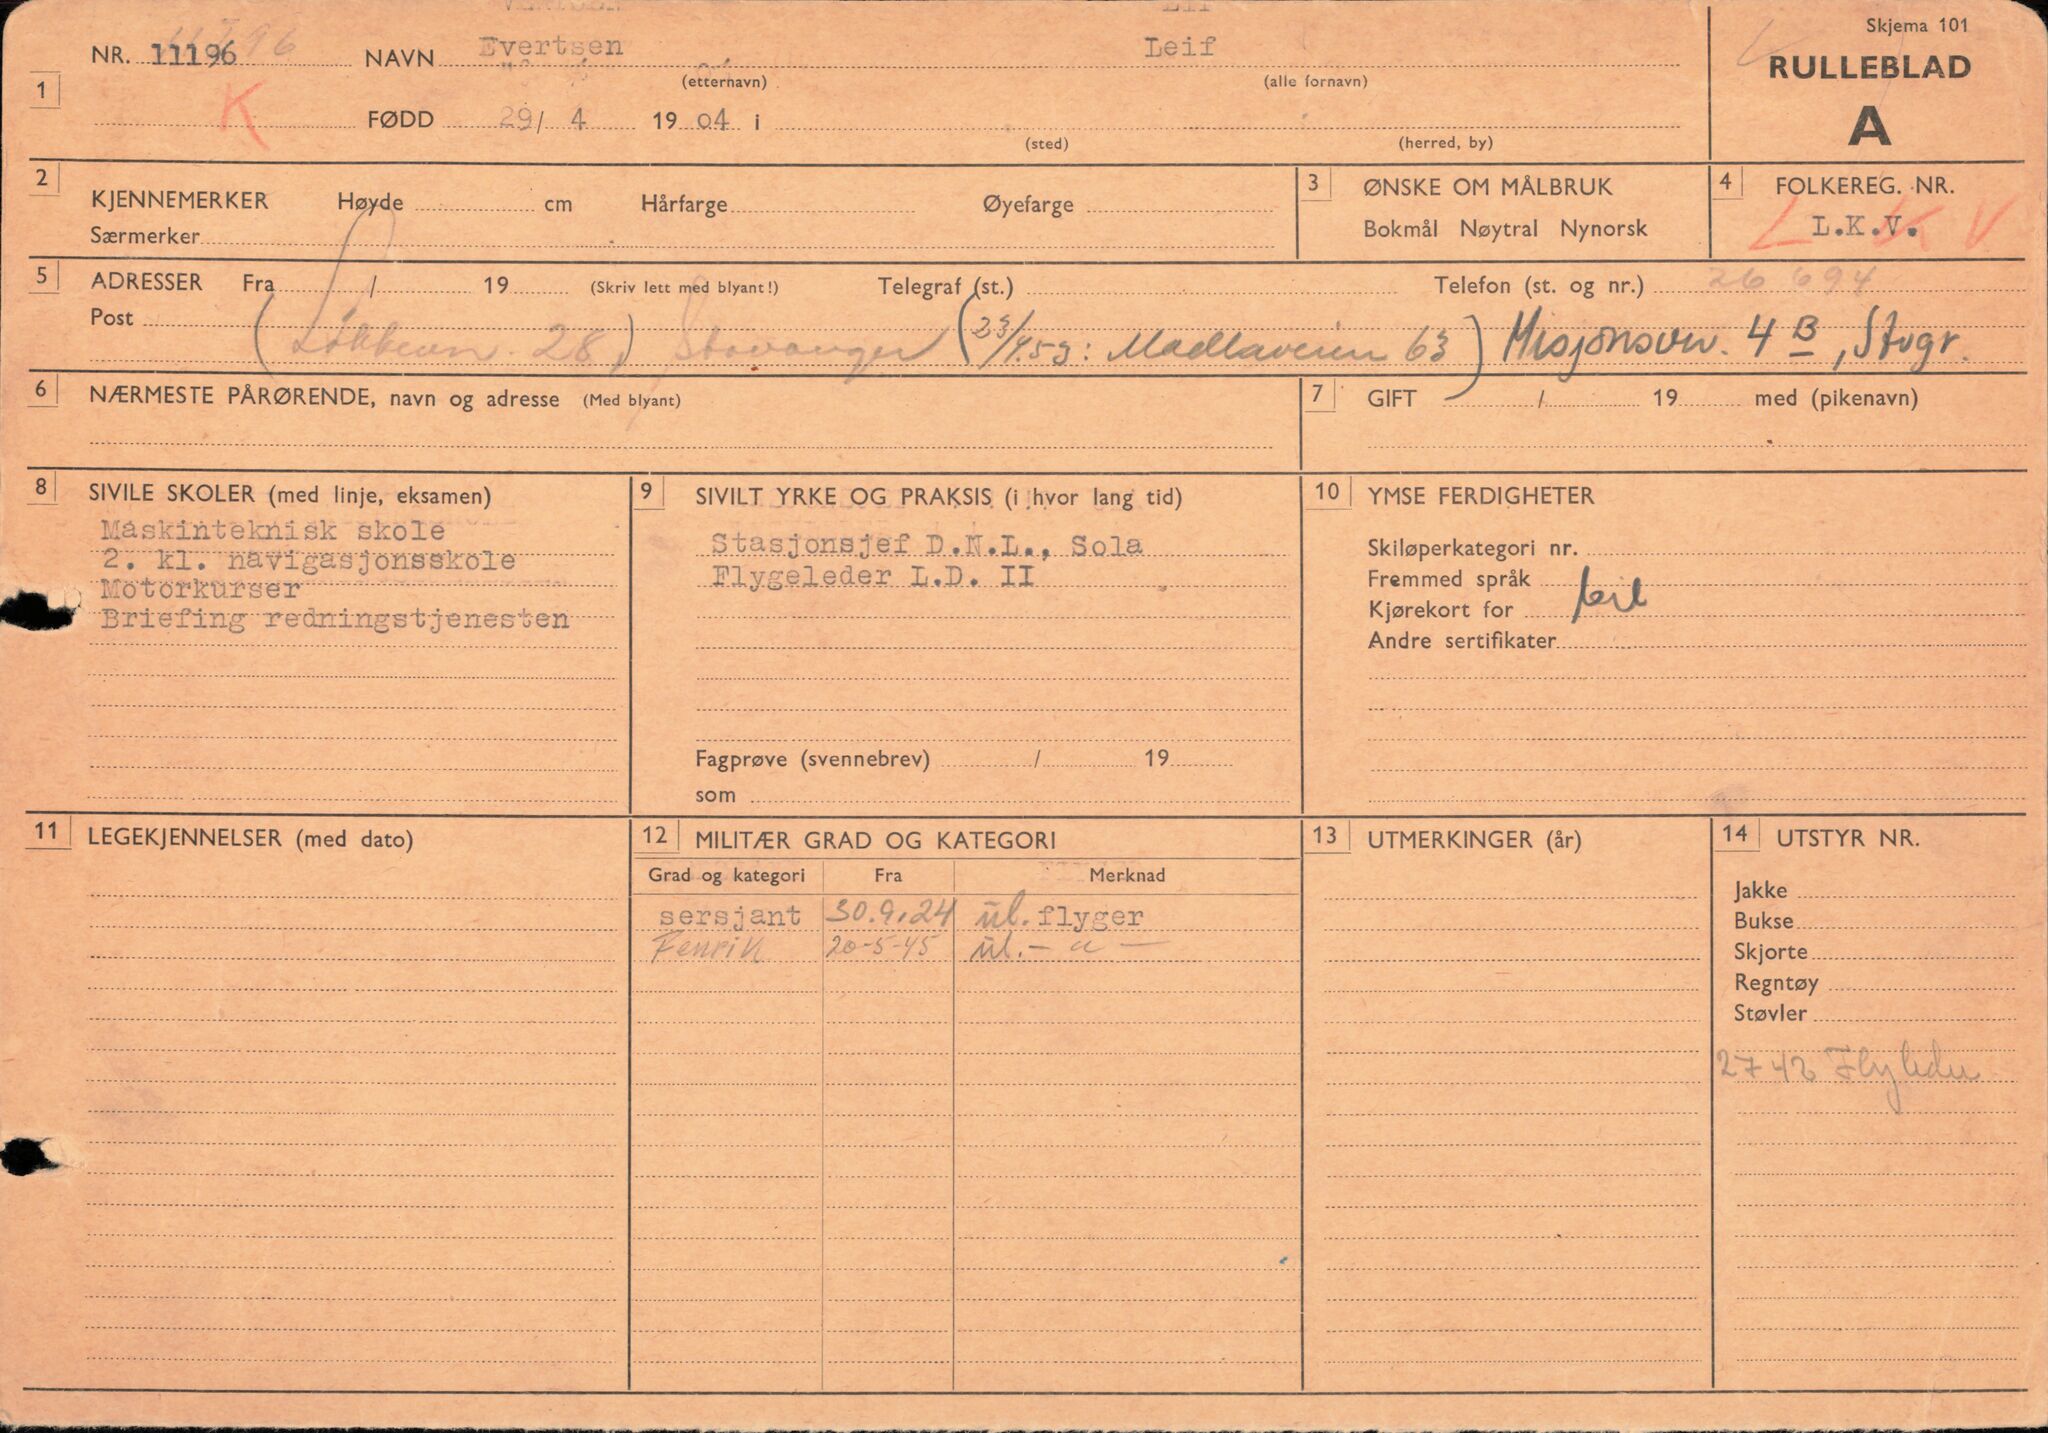 Skjema 101
RULLEBLAD
A
1
NR. 11196
K
NAVN Evertsen Leif
(etternavn) (alle fornavn)
FØDD 29/ 4 19 04 i
(sted) (herred, by)
2
KJENNEMERKER Høyde cm Hårfarge Øyefarge
Særmerker
3 ØNSKE OM MÅLBRUK
Bokmål Nøytral Nynorsk
4 FOLKEREG. NR.
L.K.V.
L K V
5 ADRESSER Fra / 19 (Skriv lett med blyant!) Telegraf (st.) Telefon (st. og nr.) 26 694
Post (28) Stavanger (23/4.59: Madlaveien 63) Misjonsvn. 4 B, Stvgr.
6 NÆRMESTE PÅRØRENDE, navn og adresse (Med blyant)
7 GIFT / 19 med (pikenavn)
8 SIVILE SKOLER (med linje, eksamen)
Maskinteknisk skole
2. kl. navigasjonsskole
Motorkurser
Briefing redningstjenesten
9 SIVILT YRKE OG PRAKSIS (i hvor lang tid)
Stasjonsjef D.N.L., Sola
Flygeleder L.D. II
Fagprøve (svennebrev) / 19
som
10 YMSE FERDIGHETER
Skiløperkategori nr.
Fremmed språk
Kjørekort for bil
Andre sertifikater
11 LEGEKJENNELSER (med dato)
12 MILITÆR GRAD OG KATEGORI
Grad og kategori Fra Merknad
sersjant 30.9.24 ul. flyger
Fenrik 20-5-45 ul. - " -
13 UTMERKINGER (år)
14 UTSTYR NR.
Jakke
Bukse
Skjorte
Regntøy
Støvler
2742 Flyleder